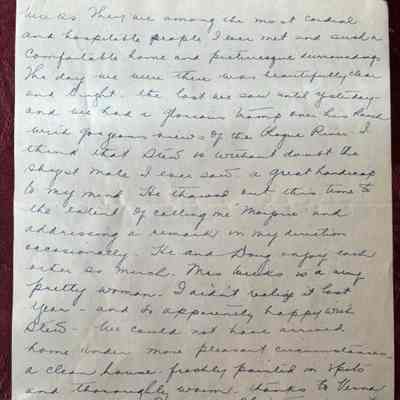 Weeks. They are among the most cordial
and hospitable people I ever met and such a
comfortable home and picturesque surroundings
The day we were there was beautifully clear
and bright - the last we saw until yesterday -
and we had a glorious tramp over his Ranch
with gorgeous views of the Rogue River. I
think that Stew is without doubt the
shyest male I ever saw - a great handicap
to my mind. He thawed out this time to
the extent of calling me "Marjorie" and
addressing a remark in my direction
occasionally. He and Doug enjoy each
other so much. Mrs Weeks is a very
pretty woman. I didn't realize it last
year - and so apparently happy with
Stew - We could not have arrived
home under more pleasant circumstances -
a clean house freshly painted in spots
and thoroughly warm - thanks to Verna